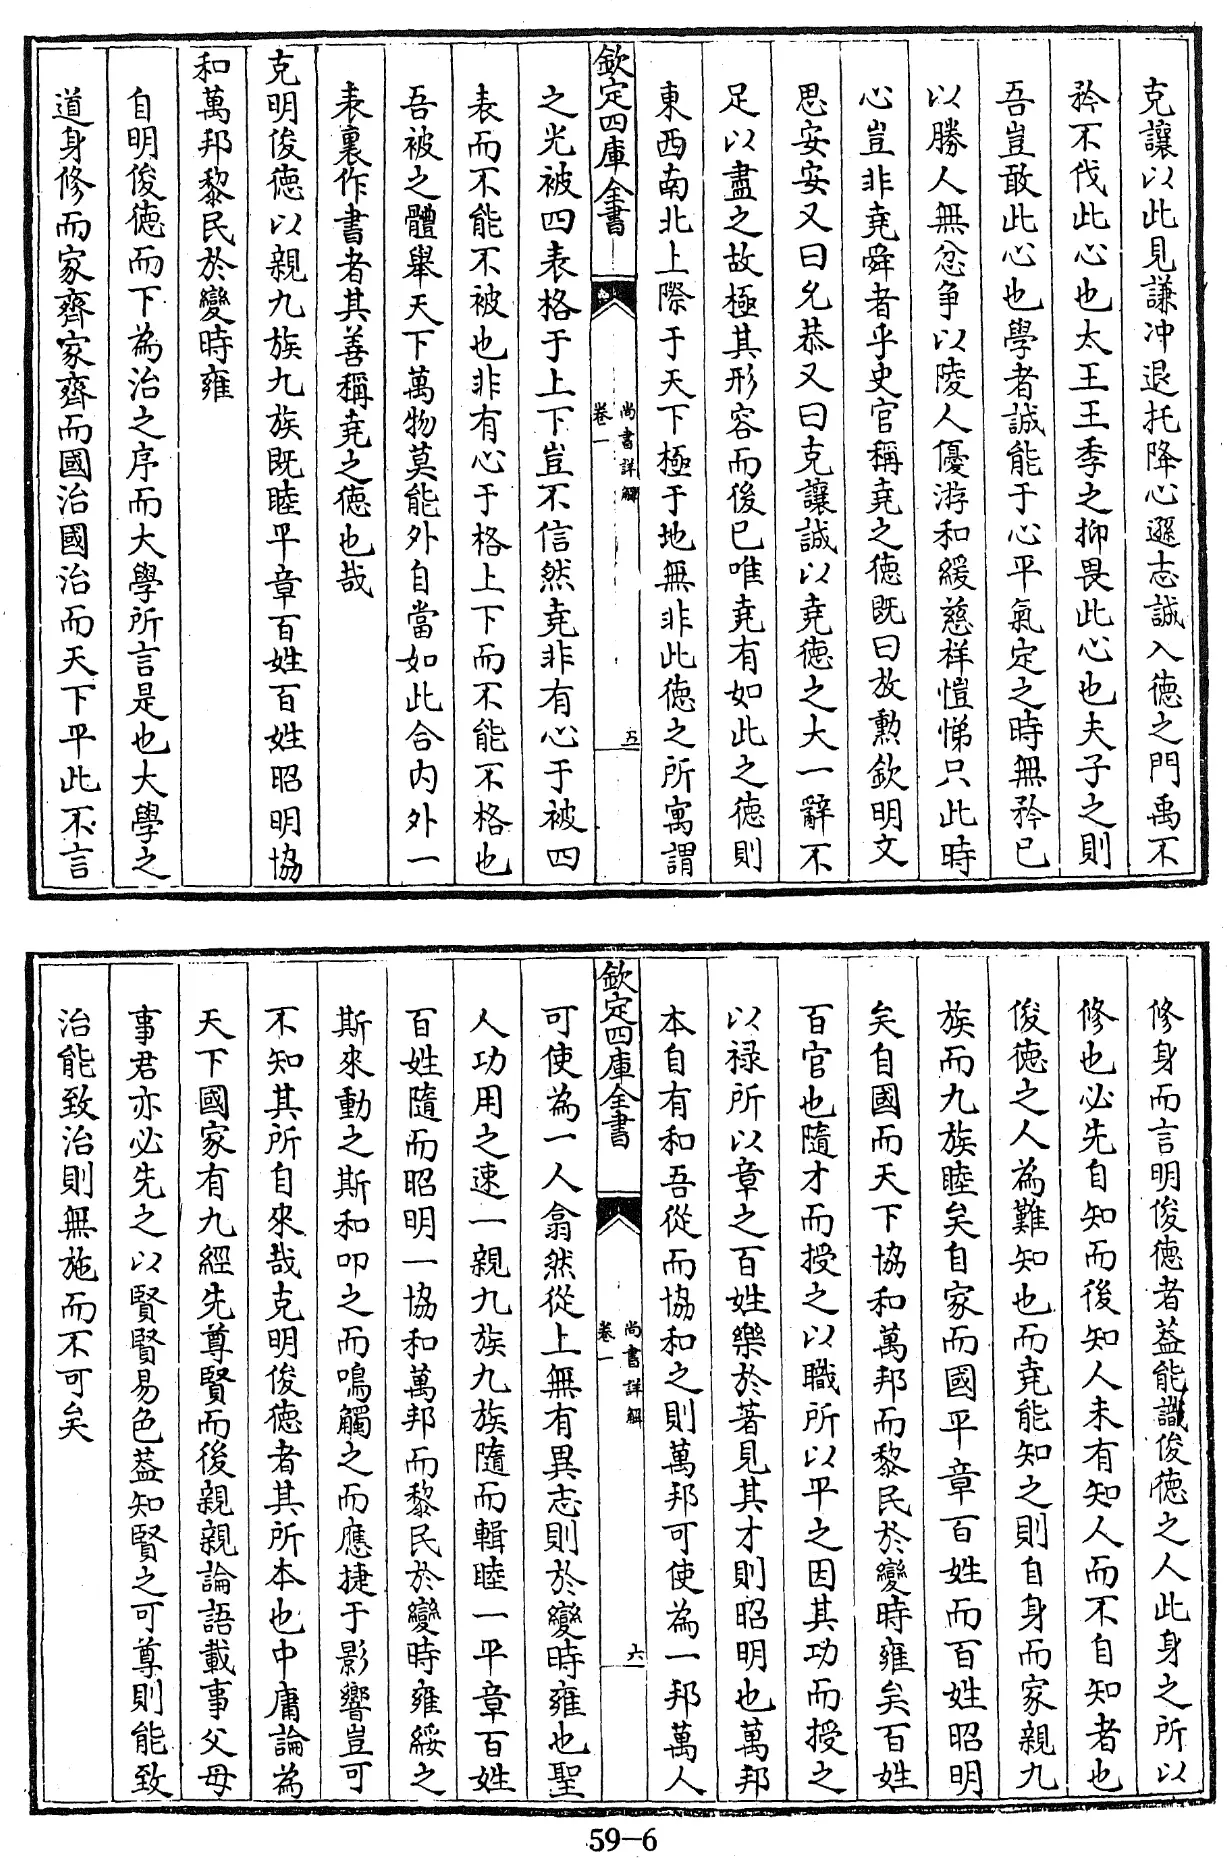 克讓以此見謙冲退托降心遜志誠入德之門禹不
矜不伐此心也太王王季之抑畏此心也夫子之則
吾豈敢此心也學者誠能于心平氣定之時無矜已
以勝人無忿争以陵人優游和緩慈祥愷悌只此時
心豈非堯舜者乎史官稱堯之德既曰放勲欽明文
思安安又曰允恭又曰克讓誠以堯德之大一辭不
足以盡之故極其形容而後已唯堯有如此之德則
東西南北上際于天下極于地無非此德之所寓謂
欽定四庫全書
尚書詳解
卷一
五
之光被四表格于上下豈不信然堯非有心于被四
表而不能不被也非有心于格上下而不能不格也
吾被之體舉天下萬物莫能外自當如此合内外一
表裏作書者其善稱堯之德也哉
克明俊德以親九族九族既睦平章百姓百姓昭明協
和萬邦黎民於變時雍
自明俊德而下為治之序而大學所言是也大學之
道身修而家齊家齊而國治國治而天下平此不言
修身而言明俊德者葢能識俊德之人此身之所以
修也必先自知而後知人未有知人而不自知者也
俊德之人為難知也而堯能知之則自身而家親九
族而九族睦矣自家而國平章百姓而百姓昭明
矣自國而天下協和萬邦而黎民於變時雍矣百姓
百官也隨才而授之以職所以平之因其功而授之
以禄所以章之百姓樂於著見其才則昭明也萬邦
本自有和吾從而協和之則萬邦可使為一邦萬人
欽定四庫全書
尚書詳解
卷一
六
可使為一人翕然從上無有異志則於變時雍也聖
人功用之速一親九族九族隨而輯睦一平章百姓
百姓隨而昭明一協和萬邦而黎民於變時雍綏之
斯來動之斯和叩之而鳴觸之而應捷于影響豈可
不知其所自來哉克明俊德者其所本也中庸論為
天下國家有九經先尊賢而後親親論語載事父母
事君亦必先之以賢賢易色葢知賢之可尊則能致
治能致治則無施而不可矣
59-6